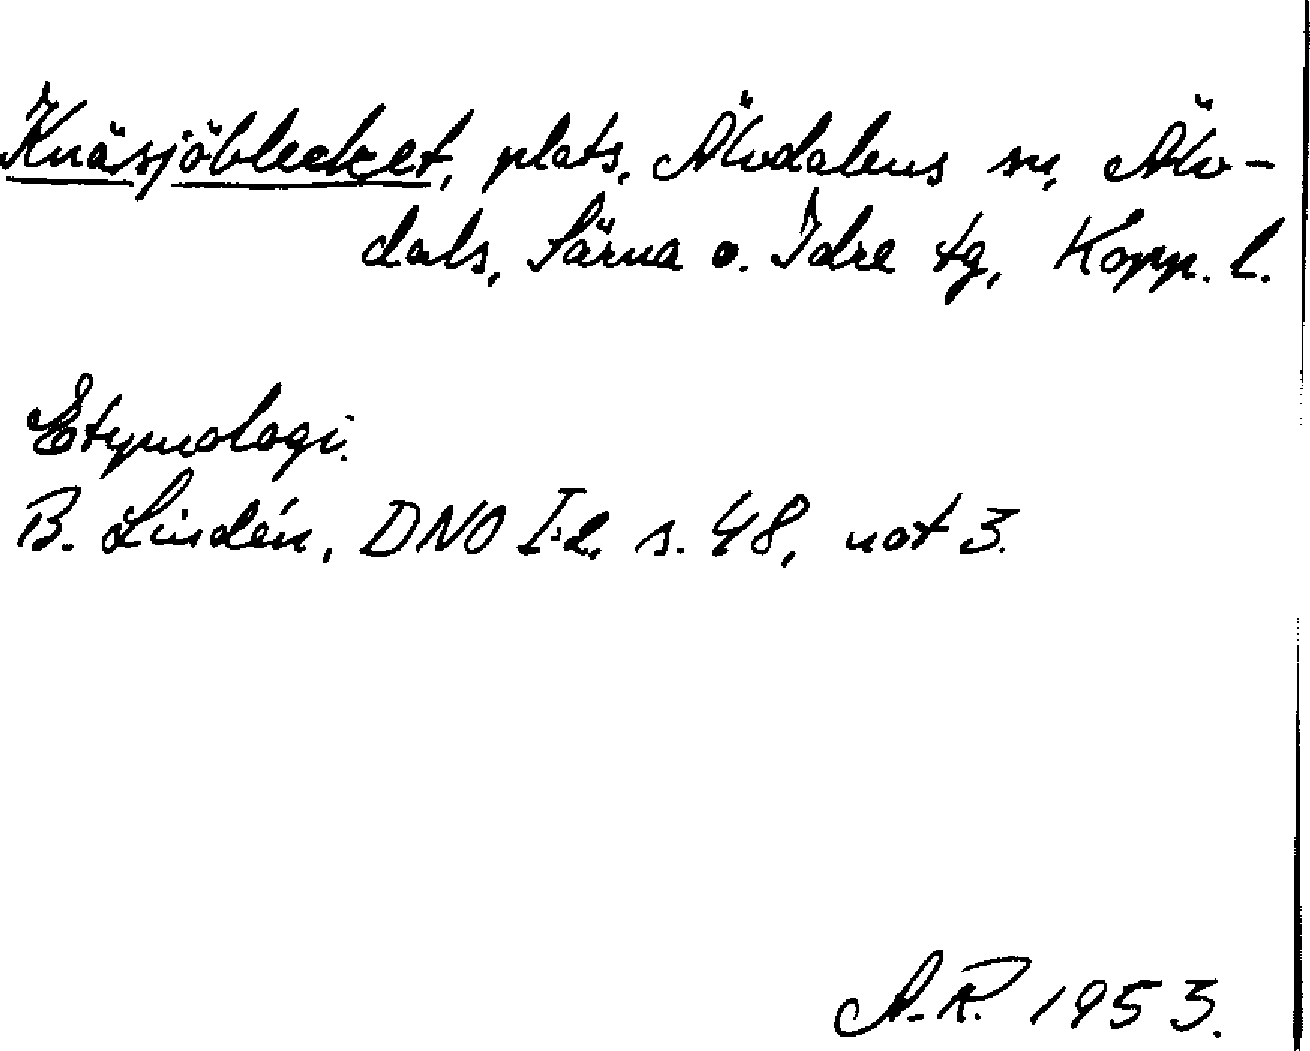 Knäsjöblecket, plats, Älvdalens sn, Älv-
dals, Särna o. Idre tg, Kopp. l.
Etymologi.
B. Lindén, DNO I:2, s. 48, not 3.
A.R. 1953.